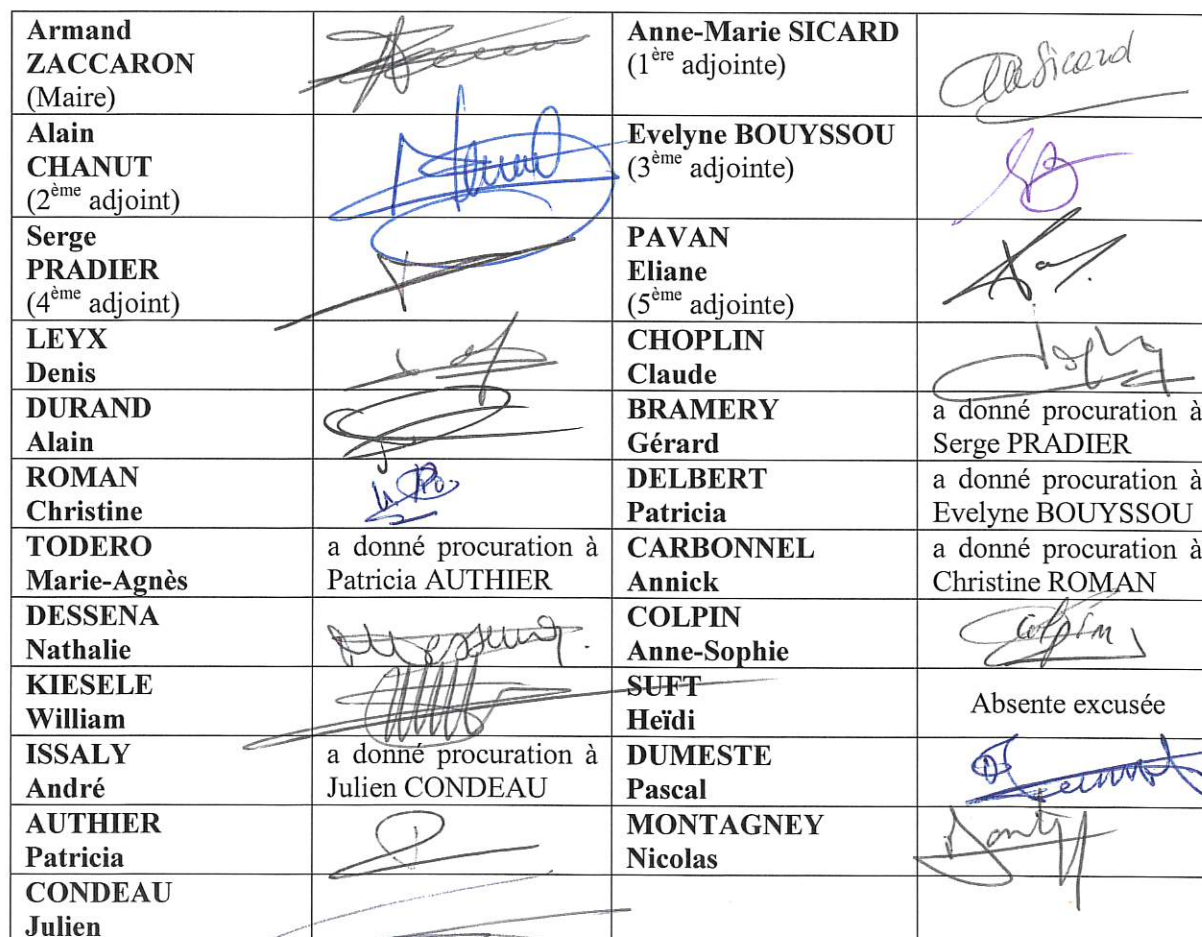 Armand
ZACCARON
(Maire)
Anne-Marie SICARD
(1ère adjointe)
Sicard
Alain
CHANUT
(2ème adjoint)
Evelyne BOUYSSOU
(3ème adjointe)
Serge
PRADIER
(4ème adjoint)
PAVAN
Eliane
(5ème adjointe)
LEYX
Denis
CHOPLIN
Claude
DURAND
Alain
BRAMERY
Gérard
a donné procuration à
Serge PRADIER
ROMAN
Christine
DELBERT
Patricia
a donné procuration à
Evelyne BOUYSSOU
TODERO
Marie-Agnès
a donné procuration à
Patricia AUTHIER
CARBONNEL
Annick
a donné procuration à
Christine ROMAN
DESSENA
Nathalie
COLPIN
Anne-Sophie
Colpin
KIESELE
William
SUFT
Heïdi
Absente excusée
ISSALY
André
a donné procuration à
Julien CONDEAU
DUMESTE
Pascal
AUTHIER
Patricia
MONTAGNEY
Nicolas
CONDEAU
Julien